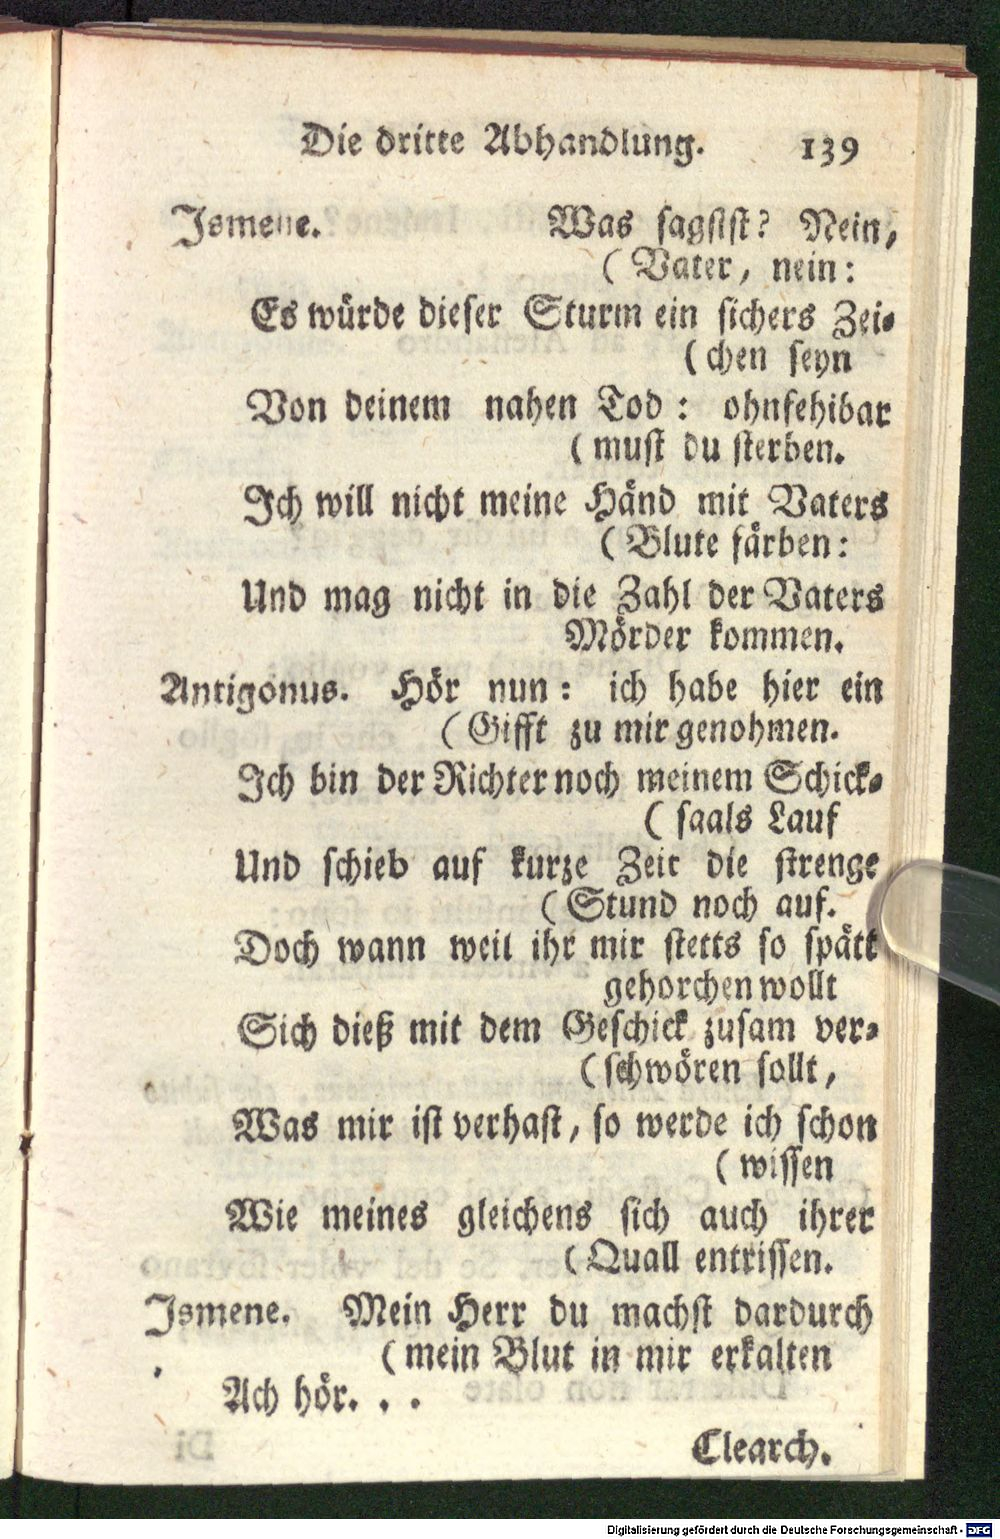 Die dritte Abhandlung. 139
Ismene. Was sagstst? Nein,
( Vater, nein:
Es würde dieser Sturm ein sichers Zei-
( chen seyn
Von deinem nahen Tod: ohnfehibar
( must du sterben.
Ich will nicht meine Händ mit Vaters
( Blute färben:
Und mag nicht in die Zahl der Vaters
Mörder kommen.
Antigonus. Hör nun: ich habe hier ein
( Gifft zu mir genohmen.
Ich bin der Richter noch meinem Schick-
( saals Lauf
Und schieb auf kurze Zeit die strenge
( Stund noch auf.
Doch wann weil ihr mir stetts so spätt
gehorchen wollt
Sich dieß mit dem Geschick zusam ver-
( schwören sollt,
Was mir ist verhast, so werde ich schon
( wissen
Wie meines gleichens sich auch ihrer
( Quall entrissen.
Ismene. Mein Herr du machst dardurch
( mein Blut in mir erkalten
Ach hör. . .
Clearch.
Digitalisierung gefördert durch die Deutsche Forschungsgemeinschaft - DFG